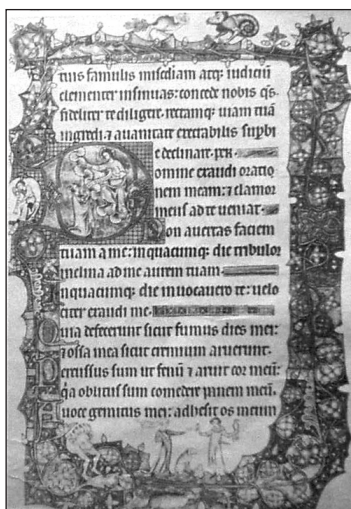 tuis famulis misc̄diam atq; iudiciū
clementer insinuas: concede nobis q̄s
fideliter te diligere. rectamq; uiam tuā
ingredi. ⁊ a uanitate execrabilis supbi
e declinare. per.
Domine exaudi oratio
nem meam: ⁊ clamor
meus ad te ueniat.
Non auertas faciem
tuam a me: in quacumq; die tribulor
inclina ad me aurem tuam.
In quacumq; die inuocauero te: uelo
citer exaudi me.
Quia defecerunt sicut fumus dies mei:
⁊ ossa mea sicut cremium aruerunt.
Percussus sum ut fenū ⁊ aruit cor meū:
q̄a oblitus sum comedere panem meū.
A uoce gemitus mei: adhesit os meum